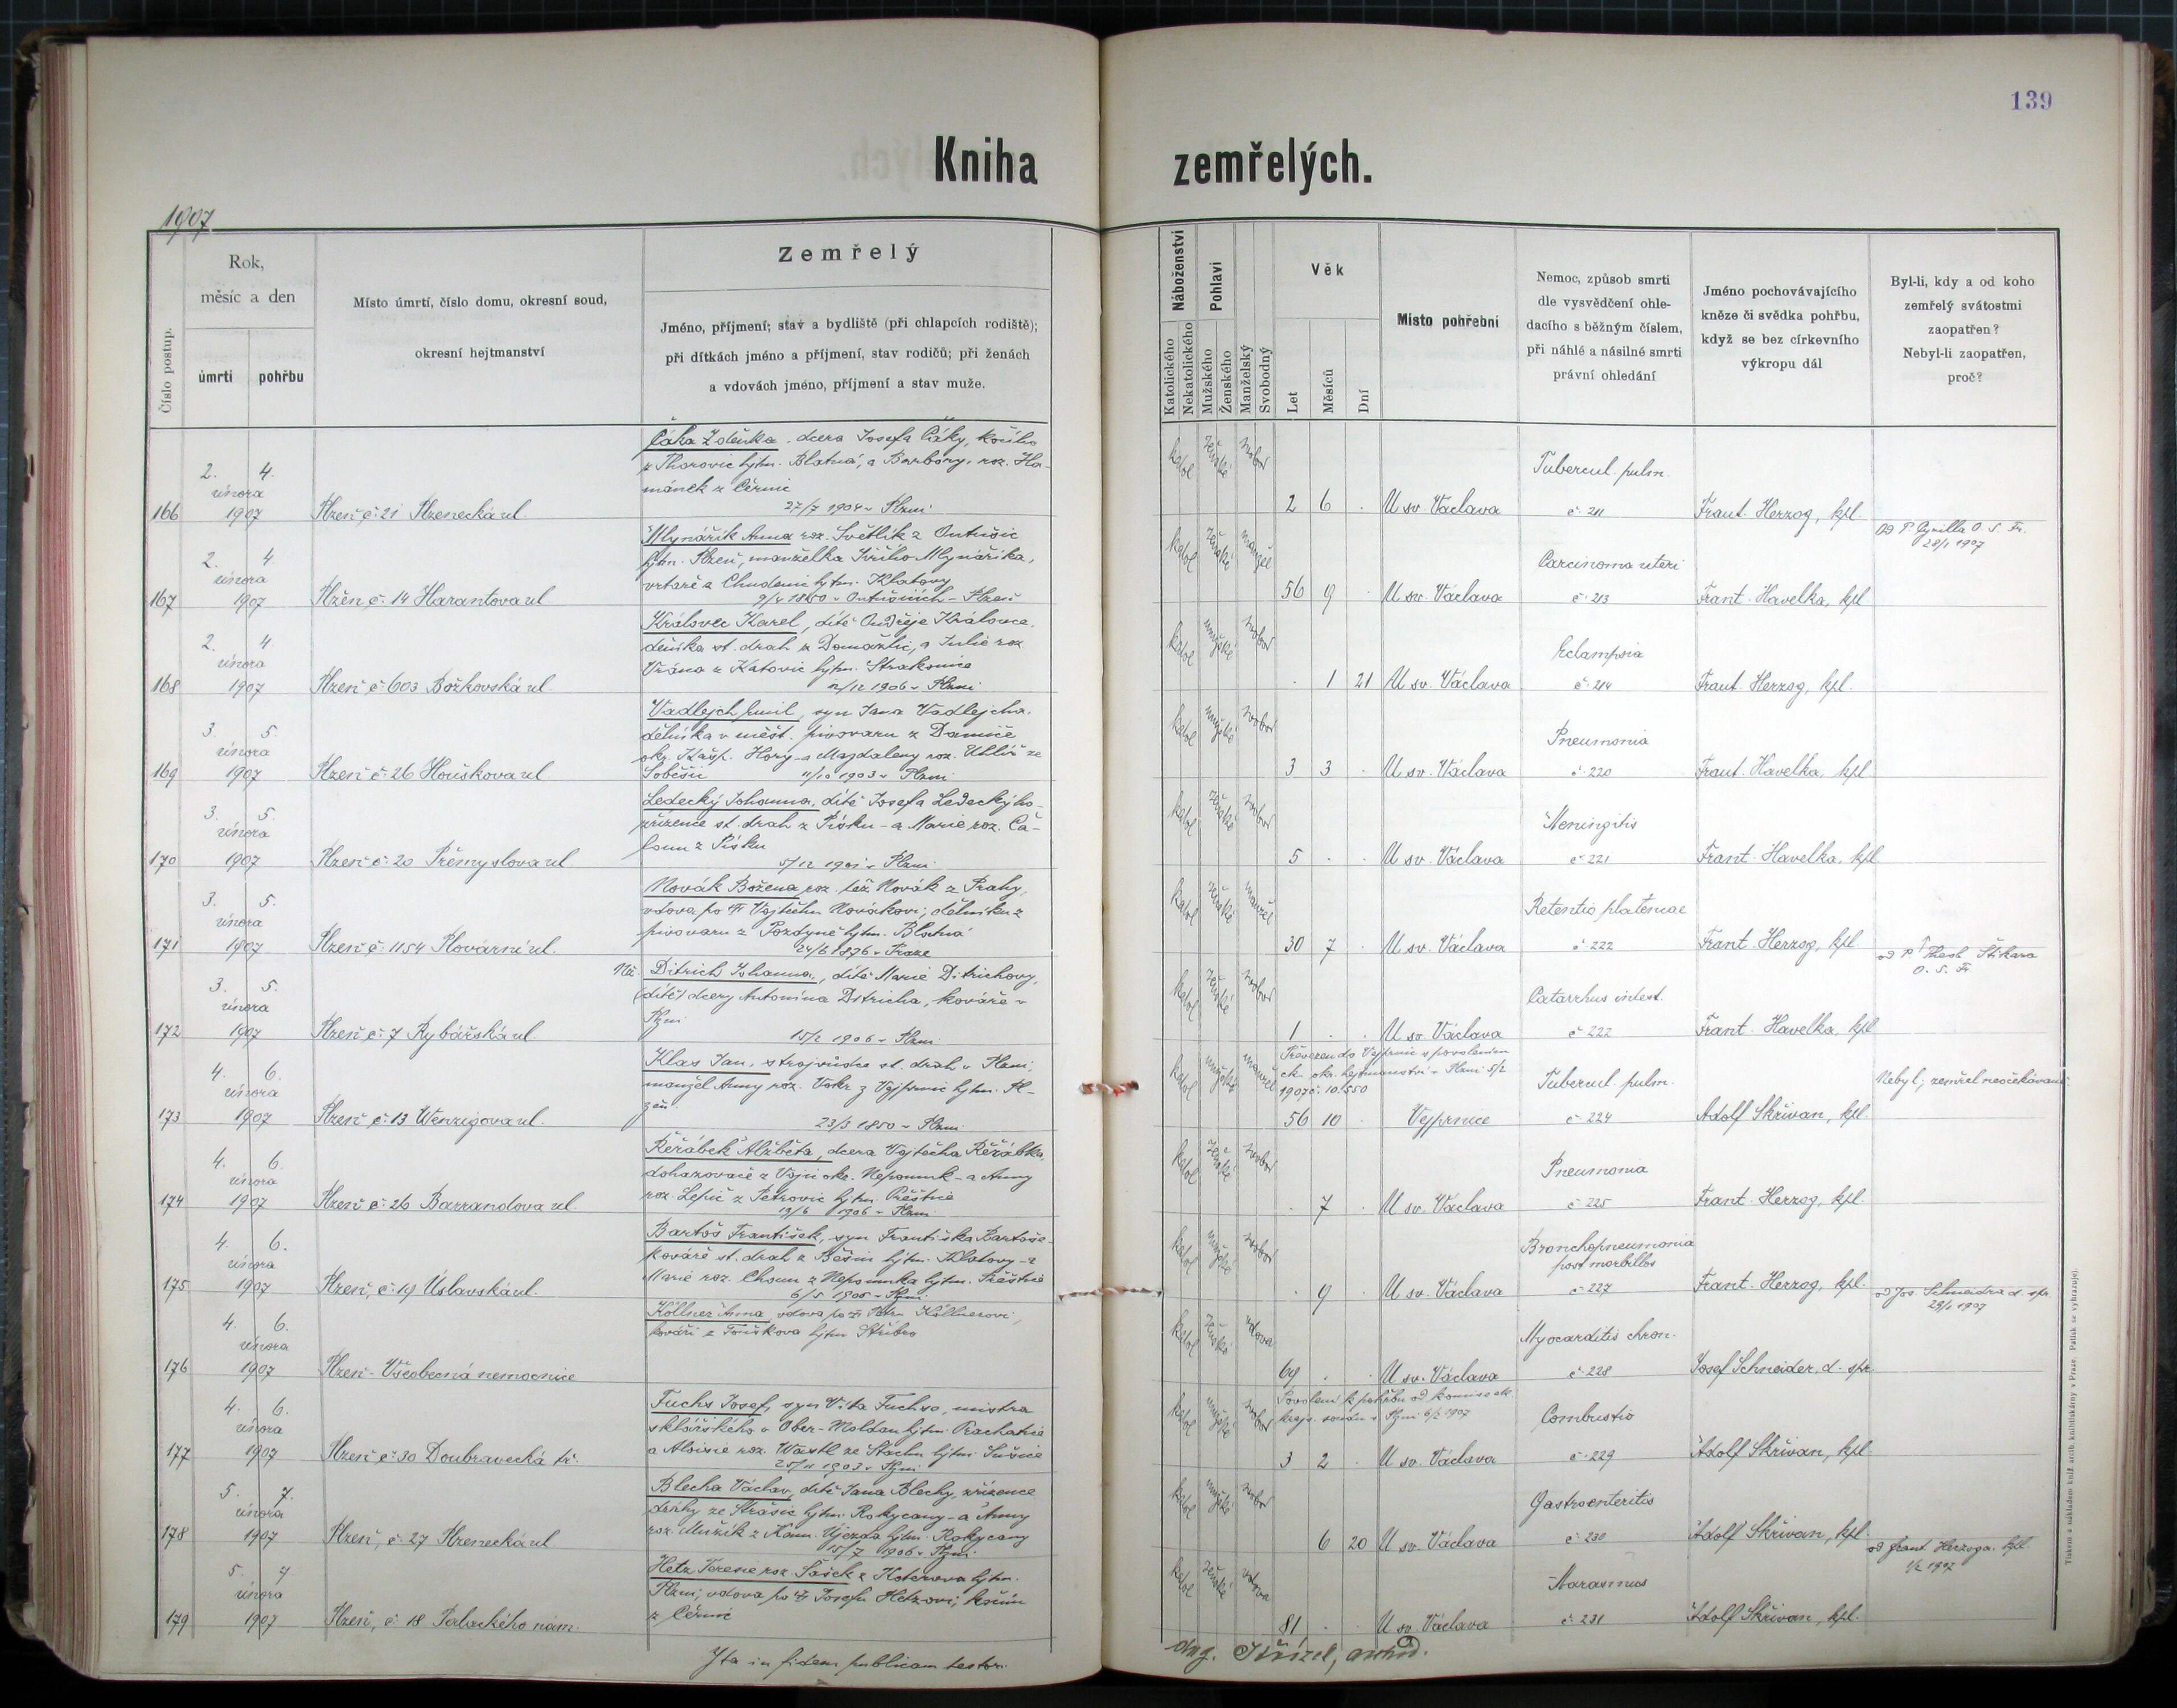 139
Kniha zemřelých.
1907
Číslo postup.
Rok,
měsíc a den
úmrtí
pohřbu
Místo úmrtí, číslo domu, okresní soud,
okresní hejtmanství
Zemřelý
Jméno, příjmení; stav a bydliště (při chlapcích rodiště);
při dítkách jméno a příjmení, stav rodičů; při ženách
a vdovách jméno, příjmení a stav muže.
Náboženství
Katolického
Nekatolického
Pohlaví
Mužského
Ženského
Manželský
Svobodný
Věk
Let
Měsíců
Dní
Místo pohřební
Nemoc, způsob smrti
dle vysvědčení ohle-
dacího s běžným číslem,
při náhlé a násilné smrti
právní ohledání
Jméno pochovávajícího
kněze či svědka pohřbu,
když se bez církevního
výkropu dál
Byl-li, kdy a od koho
zemřelý svátostmi
zaopatřen?
Nebyl-li zaopatřen,
proč?
166
2. 4.
února
1907
Plzeň č: 21 Plzenecká ul.
Čáka Zdeňka, dcera Josefa Čáky, kočího
z Thorovic hjtm. Blatná, a Barbory, roz. Ha-
mánek z Černic
27/7 1904 v Plzni
katol ženské svobod
2 6 .
U sv. Václava
Tubercul. pulm.
č. 211
Frant. Herzog, kpl
167
2. 4
února
1907
Plzeň č: 14 Harantova ul.
Mlynářík Anna roz. Světlík z Ontušic
hjtm. Plzeň, manželka Jiřího Mlynáříka,
vrtaře z Chudenic hjtm. Klatovy
katol ženské manžel
56 9 .
U sv. Václava
Carcinoma uteri
č. 213
Frant. Havelka, kpl
od P. Cyrilla O. S. Fr.
28/1 1907
168
2. 4.
února
1907
Plzeň č: 603 Božkovská ul.
Královec Karel, dítě Ondřeje Královce,
dělníka st. drah z Domažlic, a Julie roz.
Vrána z Katovic hjtm. Strakonice
12/12 1906 v Plzni
katol mužské svobod
. 1 21
U sv. Václava
Eclampsia
č. 214
Frant. Herzog, kpl.
169
3. 5.
února
1907
Plzeň č: 26 Houškova ul
Vadlejch Emil, syn Jana Vadlejcha,
dělníka v měšt. pivovaru z Damíče
okr. Kašp. Hory - a Magdaleny roz. Uhlíř ze
Soběšic 11/10 1903 v Plzni
katol mužské svobod
3 3 .
U sv. Václava
Pneumonia
č. 220
Frant. Havelka, kpl
170
3. 5.
února
1907
Plzeň č: 20 Přemyslova ul.
Ledecký Johanna, dítě Josefa Ledeckýho
zřízence st. drah z Písku - a Marie roz. Ča-
loun z Písku
5/12 1901 v Plzni
katol ženské svobod
5 . .
U sv. Václava
Meningitis
č. 221
Frant. Havelka, kpl
171
3. 5.
února
1907
Plzeň č: 1154 Plovární ul.
Novák Božena roz. též Novák z Prahy,
vdova po † Vojtěchu Novákovi, dělníku z
pivovaru z Pozdyně hjtm. Blatná
24/6 1876 v Praze
katol ženské manžel
30 7 .
U sv. Václava
Retentio platenae
č. 222
Frant. Herzog, kpl
od P. Theob. Štikara
O. S. Fr.
172
3. 5.
února
1907
Plzeň č: 7 Rybářská ul.
Ditrich Johanna, dítě Marie Ditrichovy,
(dítě) dcery Antonína Ditricha, kováře v
Plzni
15/2 1906 v Plzni
katol ženské svobod
1 . .
U sv. Václava
Catarrhus intest.
č. 222
Frant. Havelka, kpl
173
4. 6.
února
1907
Plzeň č: 13 Wenzigova ul.
Klas Jan, strojvůdce st. drah v Plzni,
manžel Anny roz. Vokr z Vejprnic hjtm. Pl-
zeň.
23/3 1850 v Plzni
katol mužské manžel
Převezen do Vejprnic s povolením
ck. okr. hejtmanství v Plzni 5/2
1907 č. 10.550
56 10 .
Vejprnice
Tubercul. pulm.
č. 224
Adolf Skřivan, kpl.
Nebyl; zemřel neočekávaně.
174
4. 6.
února
1907
Plzeň č: 26 Barrandova ul.
Řeřábek Alžběta, dcera Vojtěcha Řeřábka,
dohazovače z Vojic okr. Nepomuk - a Anny
roz. Lepič z Petrovic hjtm. Přeštice
19/6 1906 v Plzni
katol ženské svobod
. 7 .
U sv. Václava
Pneumonia
č. 225
Frant. Herzog, kpl.
175
4. 6.
února
1907
Plzeň, č: 19 Úslavská ul.
Bartoš František, syn Františka Bartoše
kováře st. drah z Běšin hjtm. Klatovy - a
Marie roz. Choun z Nepomuka hjtm. Přeštice
6/5 1906 v Plzni
katol mužské svobod
. 9 .
U sv. Václava
Bronchopneumonia
post morbillos
č. 227
Frant. Herzog, kpl.
od Jos. Schneidra d. spr.
29/1 1907
176
4. 6.
února
1907
Plzeň - Všeobecná nemocnice
Köllner Anna, vdova po † Petru Köllnerovi,
kováři z Touškova hjtm Stříbro
katol ženské vdova
69 . .
U sv. Václava
Myocarditis chron.
č. 228
Josef Schneider, d. spr.
177
4. 6.
února
1907
Plzeň č: 30 Doubravecká tř.
Fuchs Josef, syn Víta Fuchsa, mistra
sklářského v Ober-Moldau hjtm. Prachatice
a Aloisie roz. Wastl ze Stachu hjtm. Sušice
25/11 1903 v Plzni
katol mužské svobod
Povolení k pohřbu od komise ck.
kraj. soudu v Plzni 6/2 1907
3 2 .
U sv. Václava
Combustio
č. 229
Adolf Skřivan, kpl
178
5. 7.
února
1907
Plzeň, č: 27 Plzenecká ul
Blecha Václav, dítě Jana Blechy, zřízence
dráhy ze Strašic hjtm. Rokycany - a Anny
roz. Mužík z Kam. Újezda hjtm. Rokycany
15/7 1906 v Plzni
katol mužské svobod
6 20
U sv. Václava
Gastroenteritis
č. 230
Adolf Skřivan, kpl.
od Frant. Herzoga, kpl
1/2 1907
179
5. 7
února
1907
Plzeň, č: 18 Palackého nám.
Hetz Terezie roz. Šašek z Koterova hjtm.
Plzni, vdova po † Josefu Hetzovi, kočím
z Černic
katol ženské vdova
81 . .
U sv. Václava
Marasmus
č. 231
Adolf Skřivan, kpl.
Ita in fidem publicam testor.
Tiskem a nákladem kníž. arcib. knihtiskárny v Praze. Padělek se vyhrazuje.